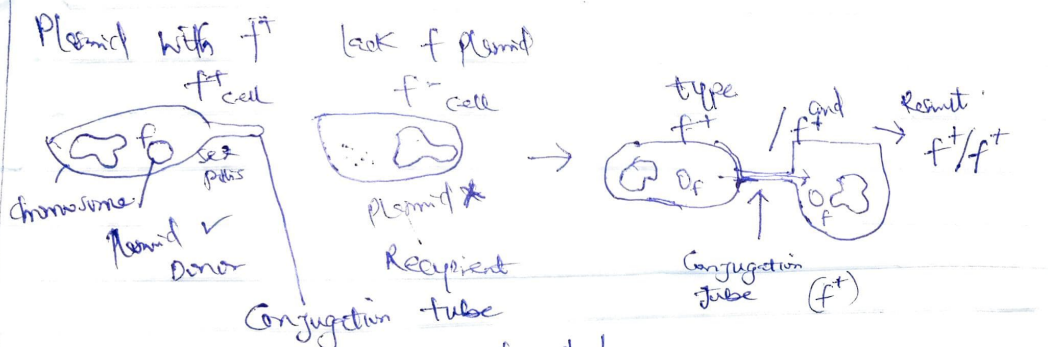 Plasmid with f+
f+ cell
f
sex
pilis
Chromosome
Plasmid ✓
Donor
Conjugation tube
Lack f plasmid
f- cell
Plasmid ✗
Recipient
type
f+ / f+ and
f
f
Conjugation
Tube
(f+)
→ Result
f+/f+